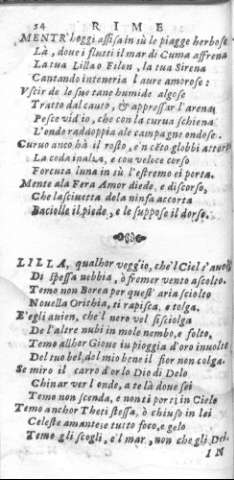 54 RIME
MENTR'hoggi assisa in sù le piagge herbose
Là, doue i flutti il mar di Cuma affrena
La tua Lilla o Filen, la tua Sirena
Cantando inteneria l'aure amorose:
Vscir de le sue tane humide algose
Tratto dal canto, & appressar l'arena
Pesce vid'io, che con la curua schiena
L'onde radoppia a le campagne ondose.
Curuo anco hà il rostro, e'n cẽto globbi attorti
La coda inalza, e con veloce corso
Forcuta luna in sù l'estremo ei porta.
Mente a la Fera Amor diede, e discorso,
Che lasciuetta de la ninfa accorta
Baciolle il piede, e le suppose il dorso.
LILLA, qualhor vegg'io, che'l Ciel s'auolti
Di spessa nebbia, ò fremer vento ascolto.
Temo non Borea per quest'aria sciolto
Nouella Orithia, ti rapisca, e tolga.
E'egli auien, che'l nero vel si sciolga
De l'altre nubi in mole nembo, e folto,
Temo allhor Gioue in pioggia d'oro inuolto
Del tuo bel, del mio bene il fior non colga.
Se miro il carro d'or lo Dio di Delo
Chinar ver l'onde, a te là doue sei
Temo non scenda, e non ti porti in Cielo
Temo anchor Theti stessa, ò chiuso in lei
Celeste amante se tutto foco, e gelo
Temo gli scogli, e'l mar, non che gli Dei.
IN